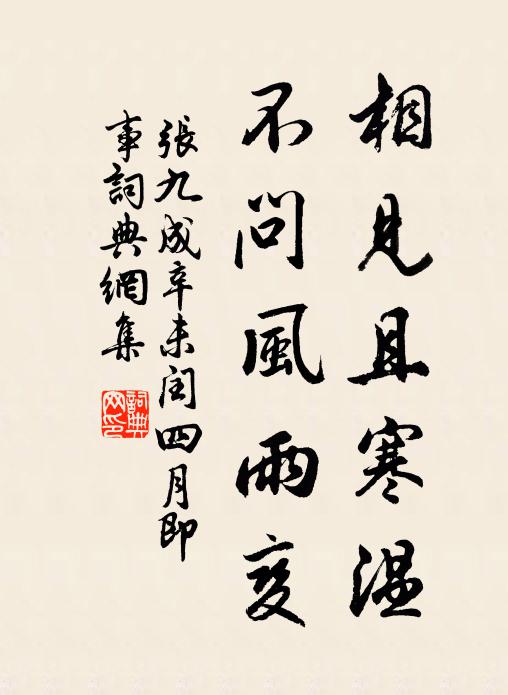 相見且寒温
不問風雨变
張九成辛未閏四月即
事詞典網集
詞典
网印